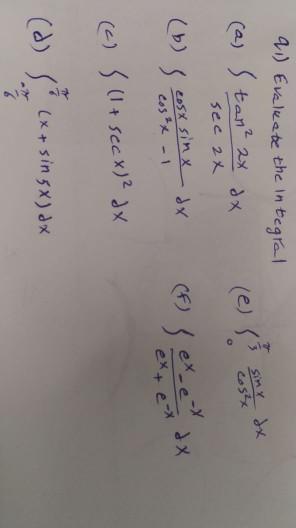 q1) Evaluate the integral
(a) ∫ tan² 2x / sec 2x dx
(b) ∫ cosx sinx / cos²x - 1 dx
(c) ∫ (1 + secx)² dx
(d) ∫_{-π/6}^{π/6} (x + sin5x) dx
(e) ∫_0^{π/3} sinx / cos²x dx
(f) ∫ e^x - e^-x / e^x + e^-x dx